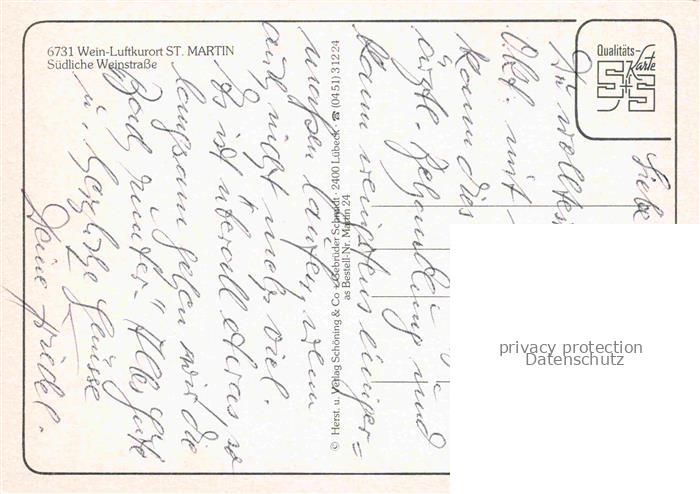 6731 Wein-Luftkurort ST. MARTIN
Südliche Weinstraße
Qualitäts-
Karte
S+S
© Herst. u. Verlag Schöning & Co + Gebrüder Schmidt · 2400 Lübeck ☎ (04 51) 3 12 24
as Bestell-Nr. Martin 24
Liebe
Du wolltest
mit
kann dies
ärztl. Behandlung und
kann wenigstens einiger=
maßen laufen, wenn
auch nicht mehr viel.
Es ist überall etwas, so
langsam gehen wir die
Bach runter. Alles Gute
u. herzliche Grüsse
Deine Friedel.
privacy protection
Datenschutz